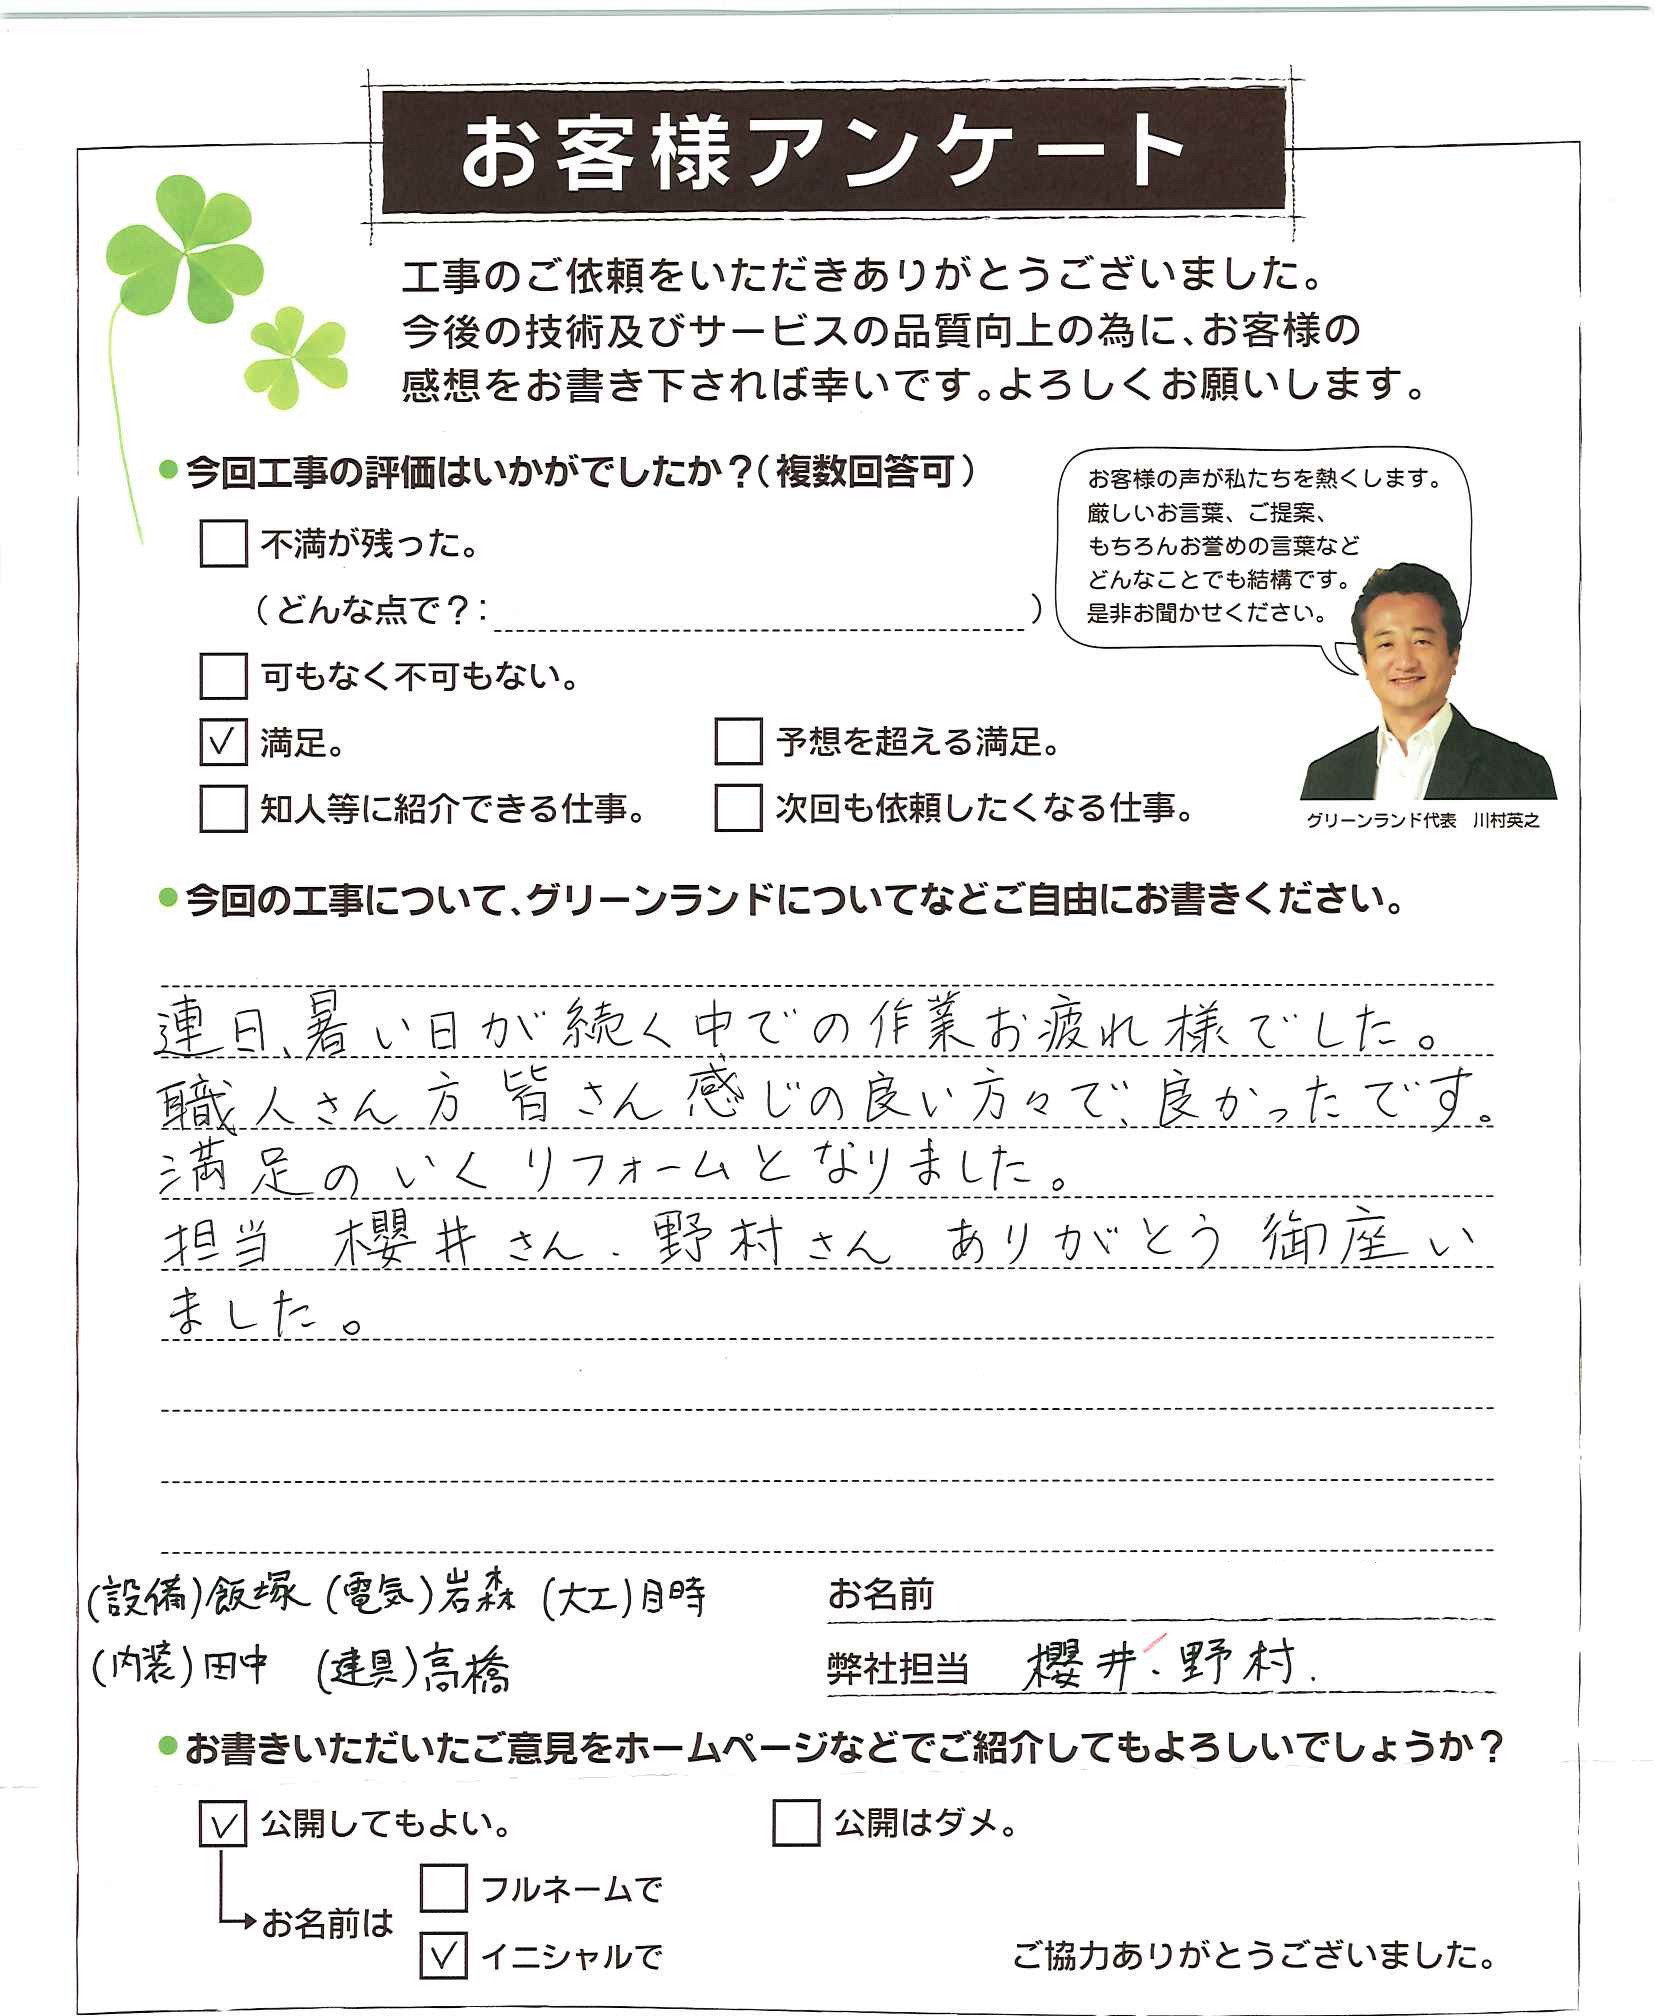 お客様アンケート
工事のご依頼をいただきありがとうございました。
今後の技術及びサービスの品質向上の為に、お客様の
感想をお書き下されば幸いです。よろしくお願いします。
●今回工事の評価はいかがでしたか？（複数回答可）
不満が残った。
（どんな点で？：　）
可もなく不可もない。
✓ 満足。
予想を超える満足。
知人等に紹介できる仕事。
次回も依頼したくなる仕事。
お客様の声が私たちを熱くします。
厳しいお言葉、ご提案、
もちろんお誉めの言葉など
どんなことでも結構です。
是非お聞かせください。
グリーンランド代表　川村英之
●今回の工事について、グリーンランドについてなどご自由にお書きください。
連日、暑い日が続く中での作業お疲れ様でした。
職人さん方 皆さん感じの良い方々で、良かったです。
満足のいくリフォームとなりました。
担当 櫻井さん、野村さん ありがとう御座い
ました。
(設備)飯塚 (電気)岩森 (大工)月時
(内装)田中 (建具)高橋
お名前
弊社担当 櫻井、野村.
●お書きいただいたご意見をホームページなどでご紹介してもよろしいでしょうか？
✓ 公開してもよい。
公開はダメ。
お名前は
フルネームで
✓ イニシャルで
ご協力ありがとうございました。